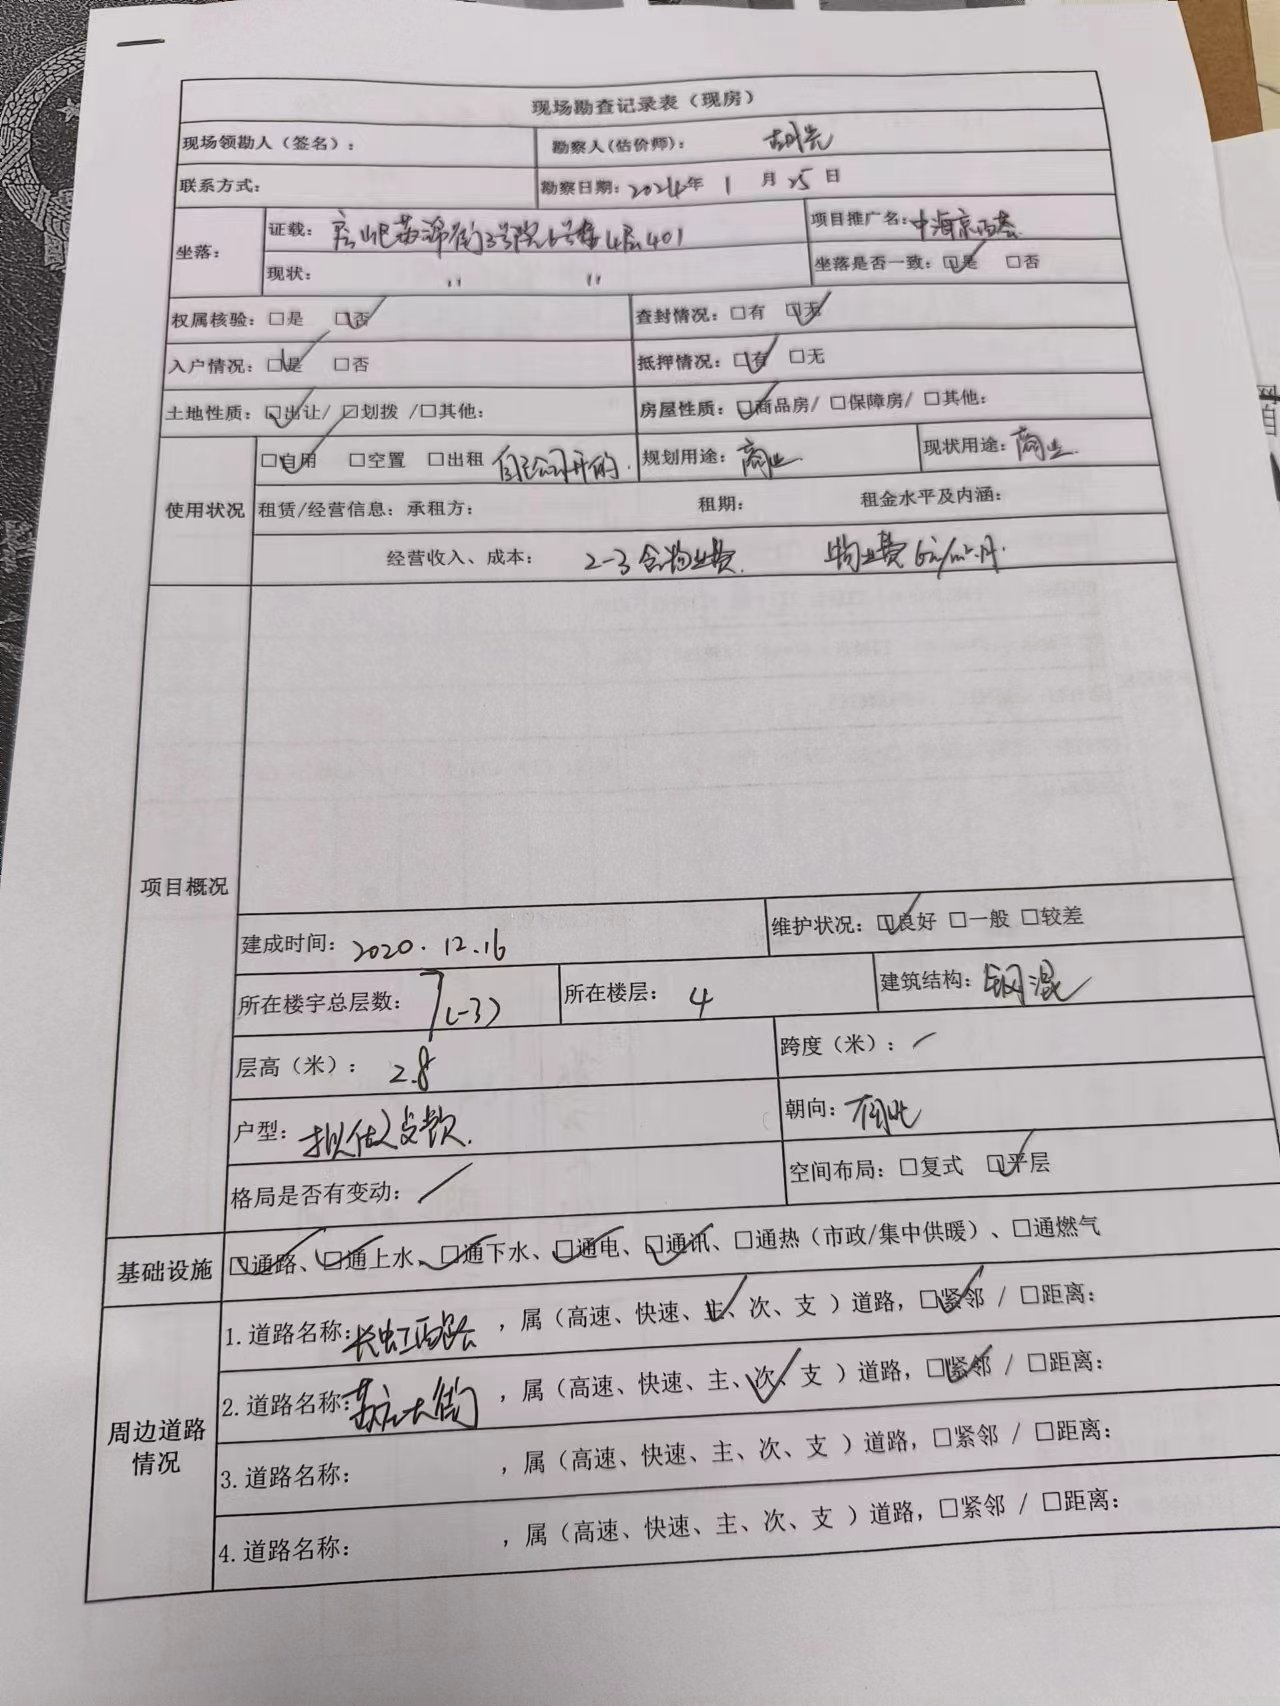 现场勘查记录表（现房）
现场领勘人（签名）： 勘察人(估价师)：
联系方式： 勘察日期：2024年 1 月 25 日
坐落： 证载： 街3号院6号楼4层401 项目推广名：中海京西
现状： 〃 〃 坐落是否一致：☑是 □否
权属核验：□是 ☑否 查封情况：□有 ☑无
入户情况：☑是 □否 抵押情况：☑有 □无
土地性质：☑出让/ □划拨 /□其他： 房屋性质：☑商品房/ □保障房/ □其他：
使用状况 ☑自用 □空置 □出租 自己公司开的. 规划用途：商业 现状用途：商业
租赁/经营信息：承租方： 租期： 租金水平及内涵：
经营收入、成本： 2-3含物业费. 物业费6元/m²·月.
项目概况
建成时间：2020.12.16 维护状况：☑良好 □一般 □较差
所在楼宇总层数：7(-3) 所在楼层：4 建筑结构：钢混
层高（米）：2.8 跨度（米）：/
户型： 朝向：南北
格局是否有变动：/ 空间布局：□复式 ☑平层
基础设施 ☑通路、☑通上水、☑通下水、☑通电、☑通讯、□通热（市政/集中供暖）、□通燃气
周边道路情况 1.道路名称：长虹西路，属（高速、快速、主、次、支 ）道路，☑紧邻 / □距离：
2.道路名称：苏庄大街，属（高速、快速、主、次、支 ）道路，☑紧邻 / □距离：
3.道路名称： ，属（高速、快速、主、次、支 ）道路，□紧邻 / □距离：
4.道路名称： ，属（高速、快速、主、次、支 ）道路，□紧邻 / □距离：